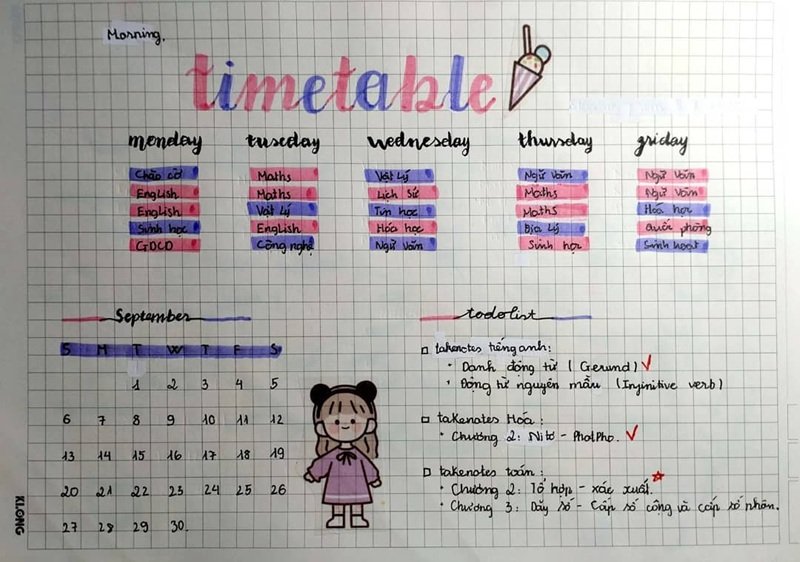 Morning.
timetable
monday tuseday wednesday thursday friday
Chào cờ Maths Vật Lý Ngữ Văn Ngữ Văn
English Maths Lịch Sử Maths Ngữ Văn
English Vật Lý Tin học Maths Hóa học
Sinh học English Hóa học Địa Lý Quốc phòng
GDCD Công nghệ Ngữ Văn Sinh học Sinh hoạt
September
S M T W T F S
1 2 3 4 5
6 7 8 9 10 11 12
13 14 15 16 17 18 19
20 21 22 23 24 25 26
27 28 29 30.
todolist
takenotes tiếng anh:
• Danh động từ (Gerund) ✓
• Động từ nguyên mẫu (Infinitive verb)
takenotes Hóa:
• Chương 2: Nitơ - Photpho. ✓
takenotes toán:
• Chương 2: Tổ hợp - xác xuất.
• Chương 3: Dãy số - Cấp số cộng và cấp số nhân.
KLONG